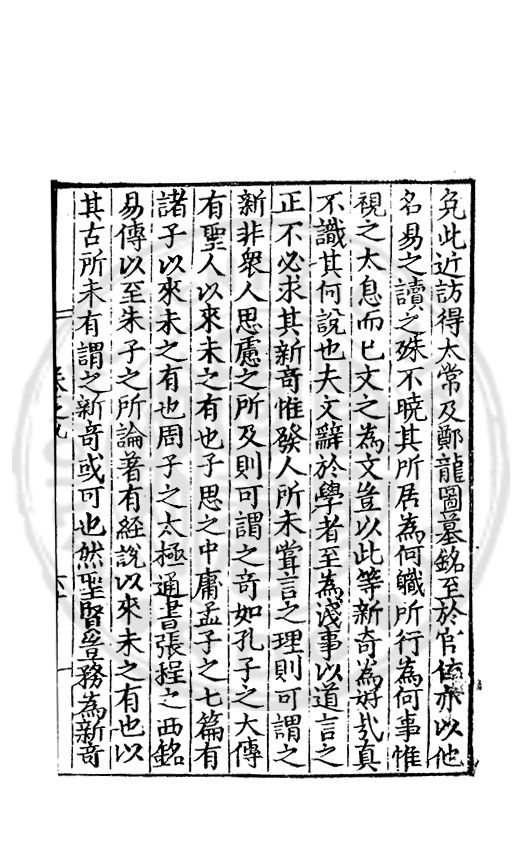 免此近訪得太常及鄭龍圖墓銘至於官侍亦以他
名易之讀之殊不曉其所居為何職所行為何事惟
視之太息而已文之為文豈以此等新奇為好哉真
不識其何說也夫文辭於學者至為淺事以道言之
正不必求其新奇惟發人所未嘗言之理則可謂之
新非衆人思慮之所及則可謂之奇如孔子之大傳
有聖人以來未之有也子思之中庸孟子之七篇有
諸子以來未之有也周子之太極通書張程之西銘
易傳以至朱子之所論著有經說以來未之有也以
其古所未有謂之新奇或可也然聖賢豈務為新奇